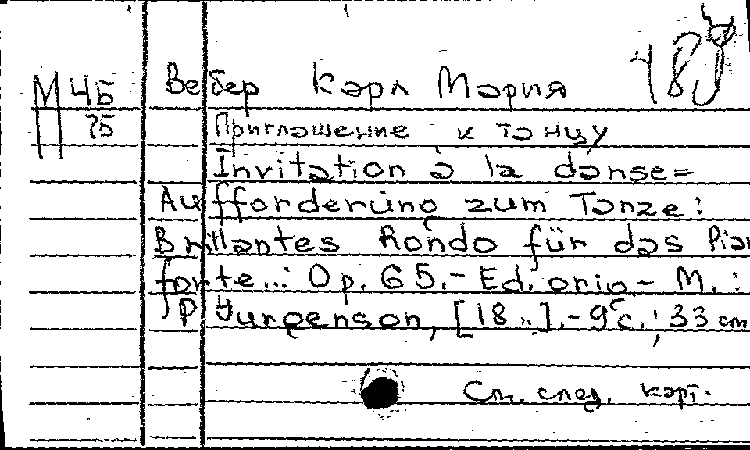 М 4Б Вебер Карл Мария
75 Приглашение к танцу
Invitation à la danse=
Aufforderung zum Tanze:
Brillantes Rondo für das Pian
forte...: Op. 65.- Ed. orig.- M.:
P. Jurgenson, [18 ..].- 9 c.; 33 cm
См. след. карт.